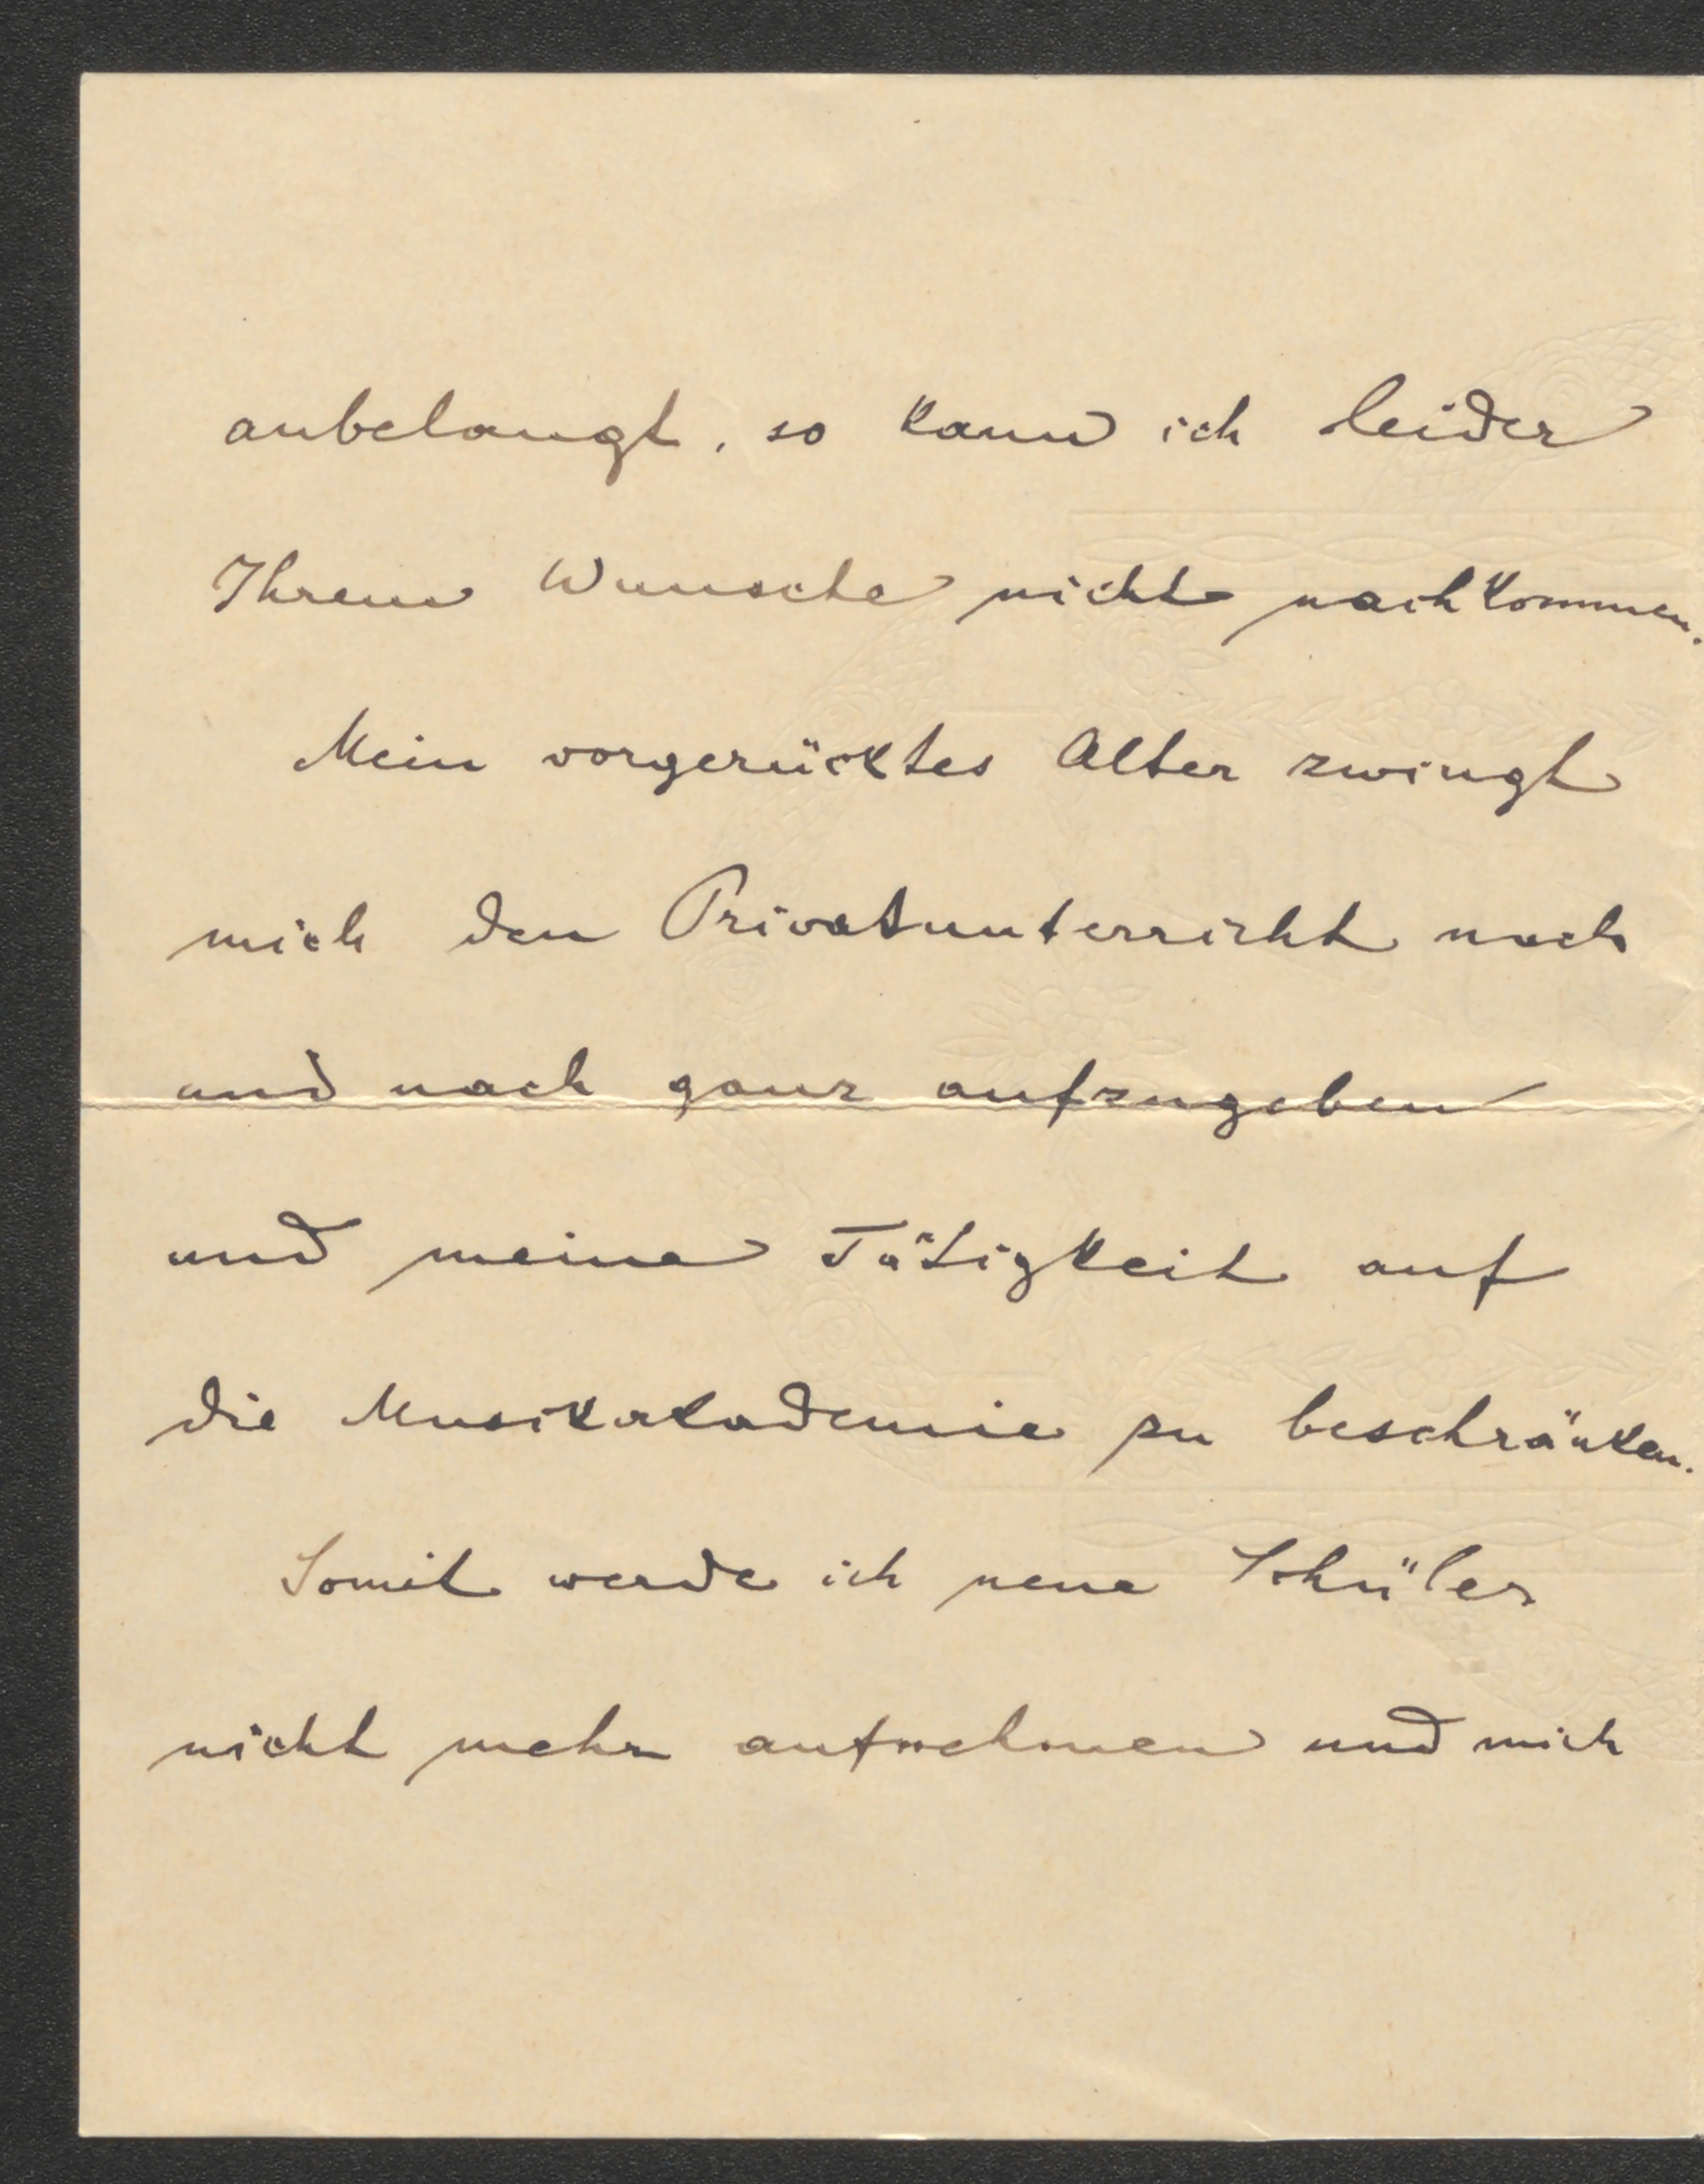 anbelangt, so kann ich leider
Ihrem Wunsche nicht nachkommen.
Mein vorgerücktes Alter zwingt
mich den Privatunterricht nach
und nach ganz aufzugeben
und meine Tätigkeit auf
die Musikakademie zu beschränken.
Somit werde ich neue Schüler
nicht mehr aufnehmen und mich